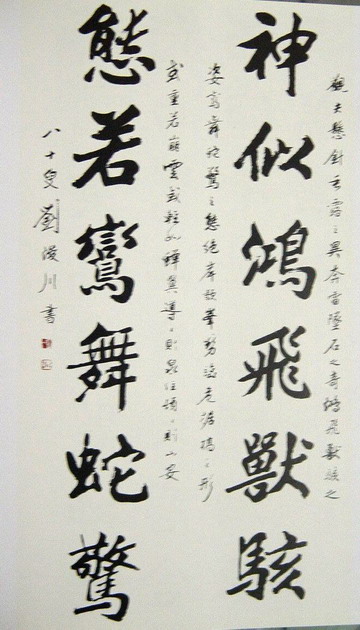 觀夫懸針垂露之異奔雷墜石之奇鴻飛獸駭之
神似鴻飛獸駭
姿鸞舞蛇驚之態絕岸頹峯勢臨危據槁之形
或重若崩雲或輕如蟬翼導之則泉注頓之則山安
態若鸞舞蛇驚
八十叟劉浚川書